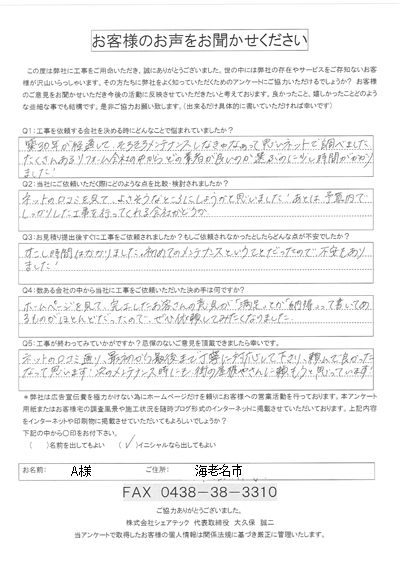 お客様のお声をお聞かせください
この度は弊社に工事をご用命いただき、誠にありがとうございました。世の中には弊社の存在やサービスをご存知ないお客
様が沢山いらっしゃいます。その方たちに弊社をよく知っていただくためのアンケートにご協力いただけるでしょうか? お客様
のご意見をお聞かせいただき今後の活動に反映させていただきたいと考えております。良かったこと、嬉しかったことどのよう
な些細な事でも結構です。是非ご協力お願い致します。(出来るだけ具体的に書いていただければ幸いです)
Q1:工事を依頼する会社を決める時にどんなことで悩まれていましたか?
築30年が経過して、そろそろメンテナンスしなきゃなぁって思いネットで調べました
たくさんあるリフォーム会社の中から、どの業者が良いのか選ぶのに少し時間がかかり
ました!
Q2:当社にご依頼いただく際にどのような点を比較・検討されましたか?
ネットの口コミを見て、よさそうなところにしようかと思いました!あとは予算内で
しっかりした工事を行ってくれる会社かどうか
Q3:お見積り提出後すぐに工事をご依頼されましたか?もしご依頼されなかったとしたらどんな点が不安でしたか?
すこし時間はかかりました。初めてのメンテナンスということだったので、不安もあり
ました!
Q4:数ある会社の中から当社に工事をご依頼いただいた決め手は何ですか?
ホームページを見て、完工したお客さんの意見が「満足」とか「納得」って書いてあ
るものがほとんどだったので、ぜひ依頼してみたくなりました。
Q5:工事が終わってみていかがですか?忌憚のないご意見を頂戴できましたら幸いです。
ネットの口コミ通り、最初から最後まで丁寧に対応して下さり、頼んで良かった
なって思います!次のメンテナンス時にも、街の屋根やさんに頼もうと思っています!
*弊社は広告宣伝費を極力かけない為にホームページだけを頼りにお客様への営業活動を行っております。本アンケート
用紙またはお客様宅の調査風景や施工状況を随時ブログ形式のインターネットに掲載させていただいております。上記内容
をインターネットや印刷物に掲載させていただいてもよろしいでしょうか?
下記の中から〇印をお付下さい。
( )名前を出してもよい (✓)イニシャルなら出してもよい
お名前: A様 ご住所: 海老名市
FAX 0438-38-3310
ご協力ありがとうございました。
株式会社シェアテック 代表取締役 大久保 誠二
当アンケートで取得したお客様の個人情報は関係法規に基づき厳正に管理いたします。